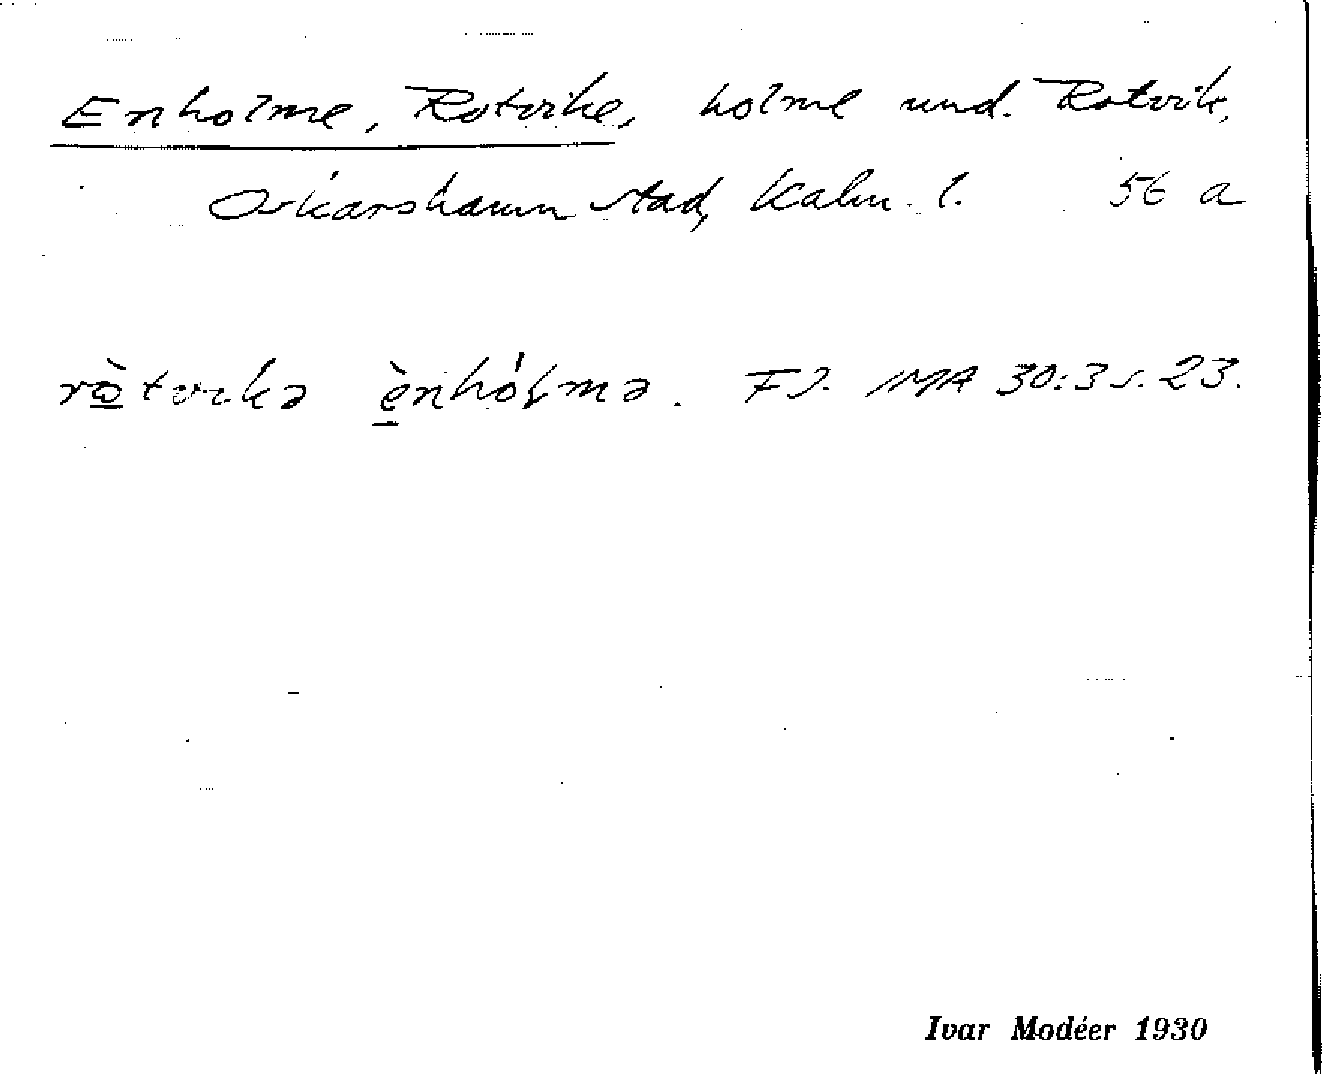 Enholme, Rotvike, holme und. Rotvik,
Oskarshamn stad, Kalm. l. 56 a
rö̀tvıkə ènhólmə. FJ. IMA 30:3 s. 23.
Ivar Modéer 1930